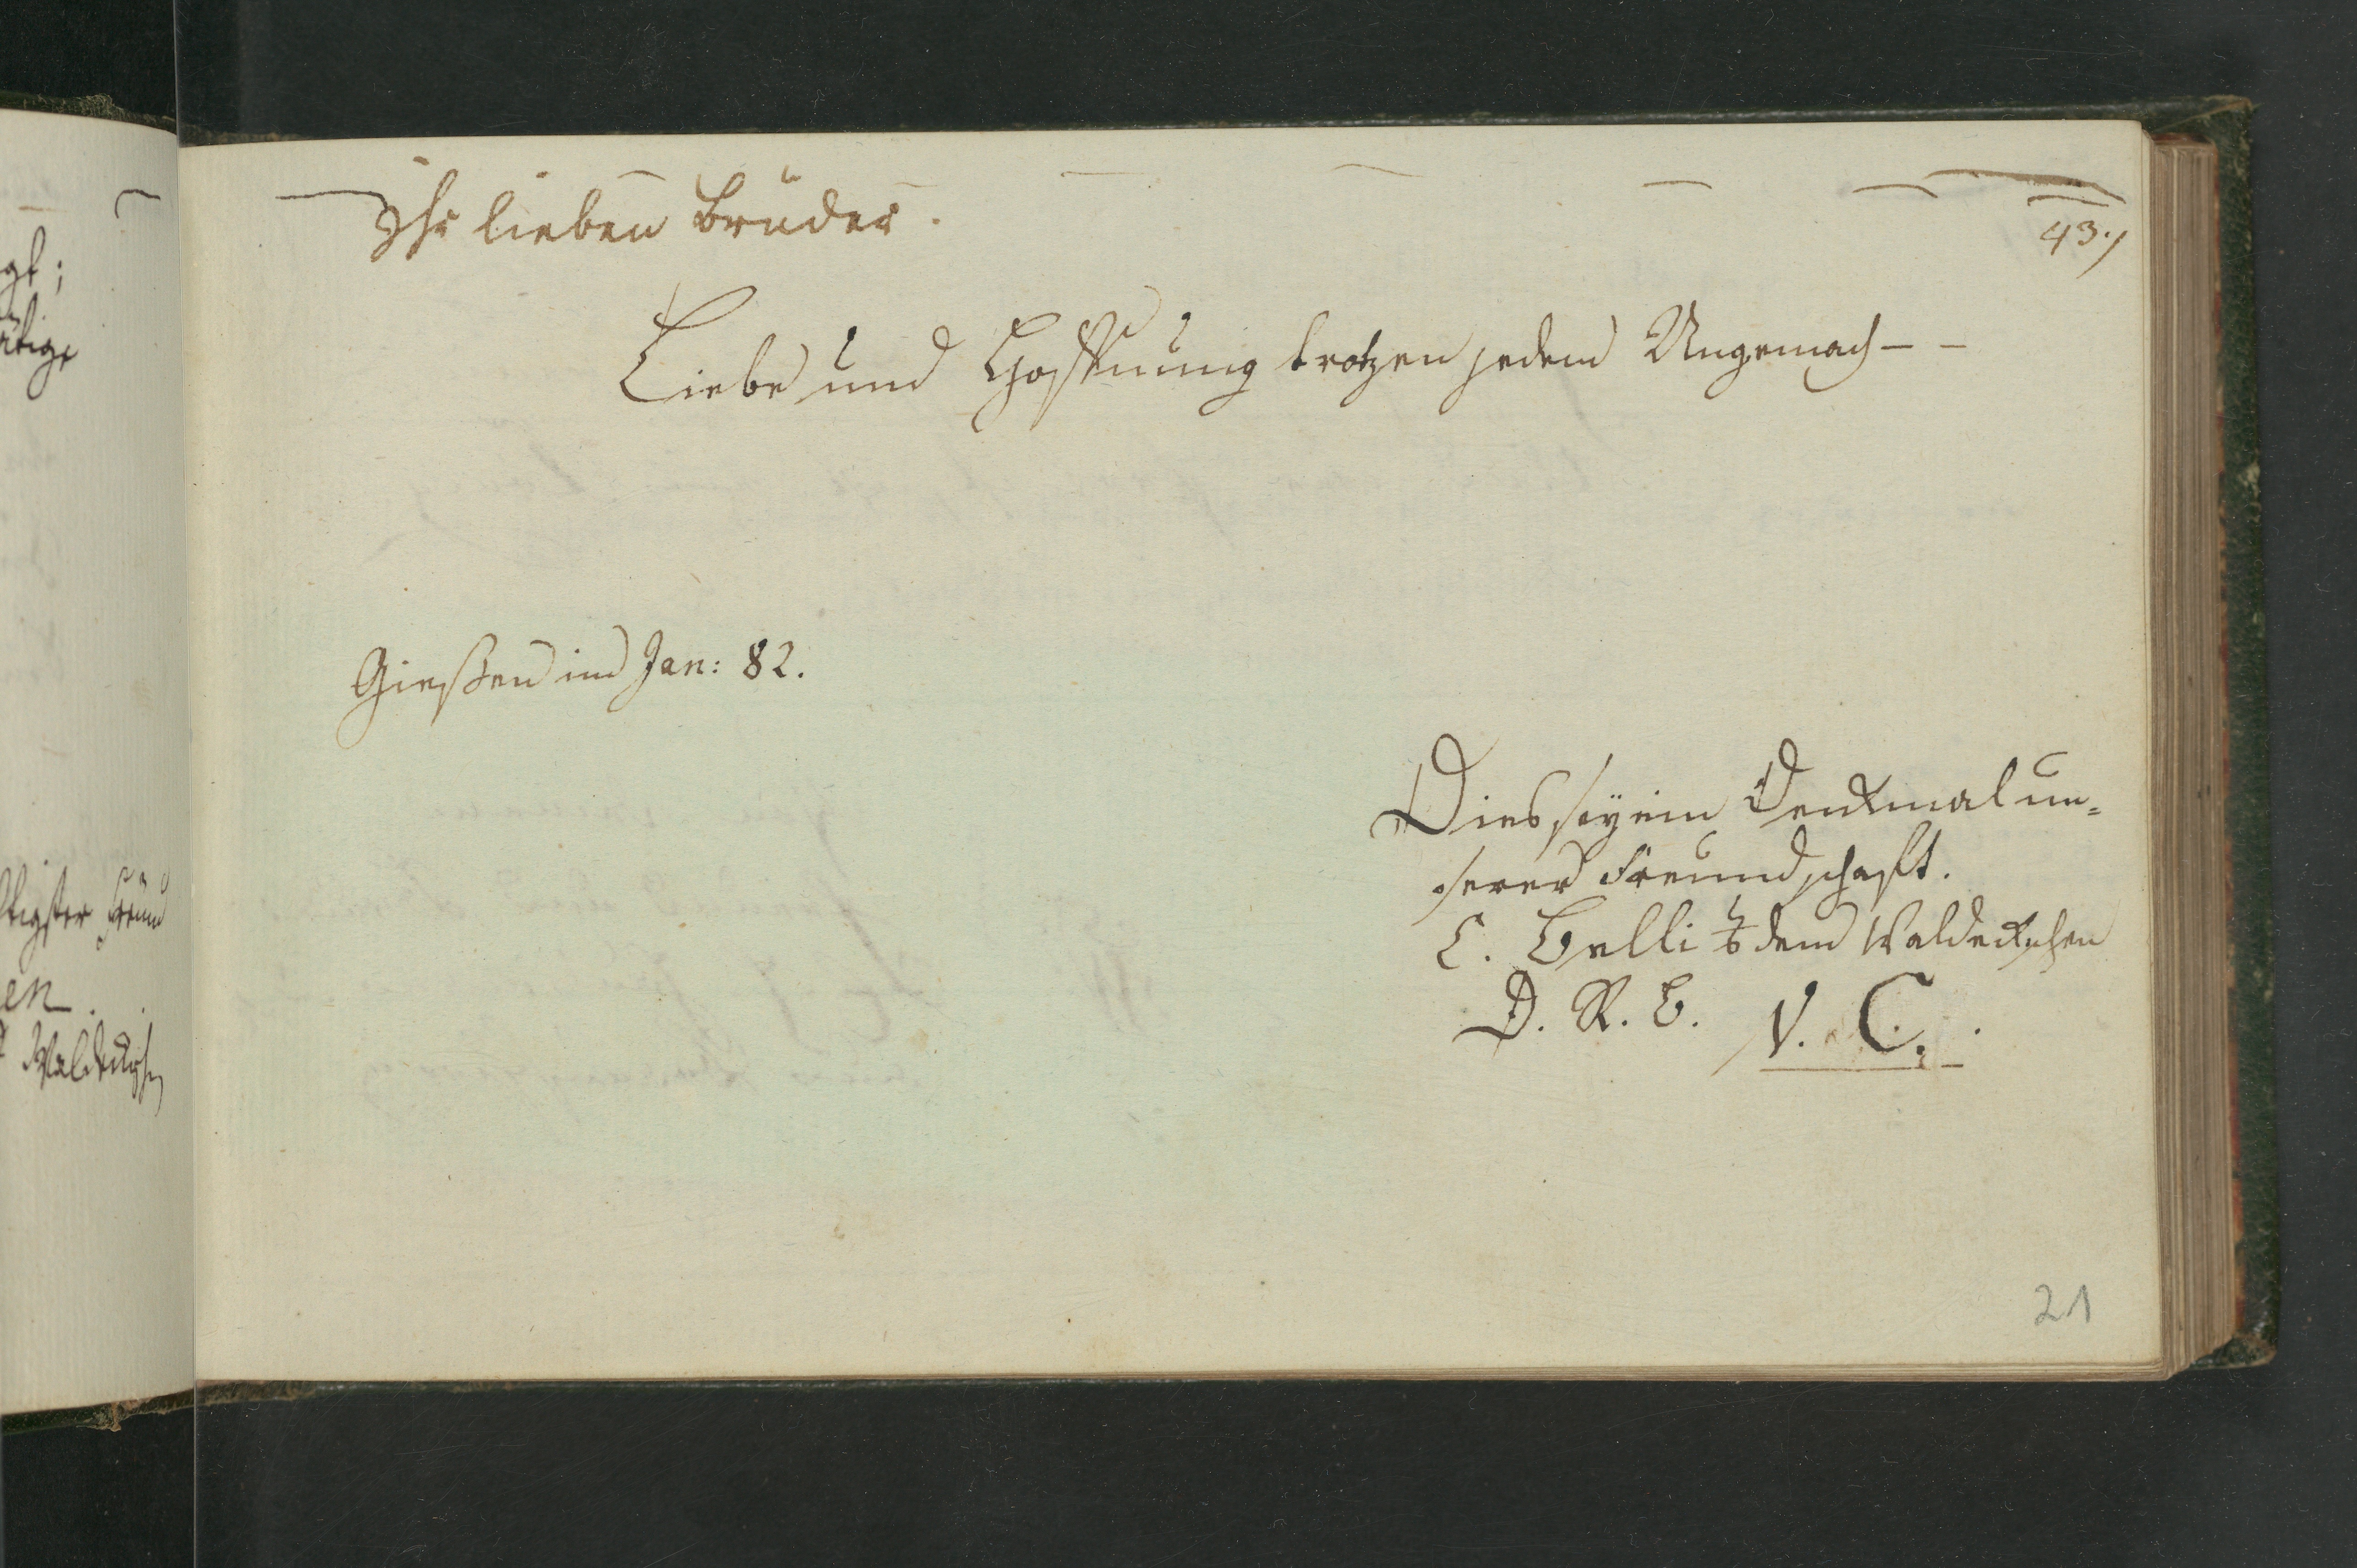 Ihr lieben Brüder.
43.
Liebe und Hoffnung trotzen jedem Ungemach - -
Gießen im Jan: 82.
Dies sey ein Denkmal un=
serer Freundschaft.
C. Belli dem Waldeckschen
D. R. B. V. C.
21
gt;
ätige
tigster Freund
en.
Waldecksch